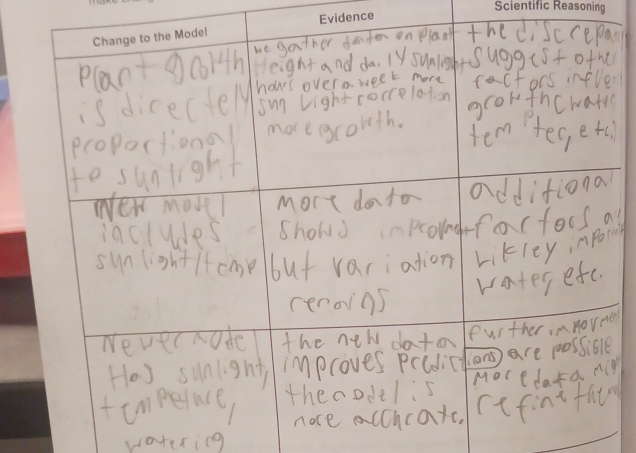 Change to the Model
Evidence
Scientific Reasoning
plant grorth
is directely
proportional
to sunlight
we gather data on plant
height and daily sunlight
hours over a week more
sun light correlation
more growth.
the discrepan
suggest other
factors influe
growth(water
tem etc)
New model
includes
sunlight/temp
More data
shows improvment
but variation
additional
factors a
Likley importan
water, etc.
Newer model
Has sunlight,
tempeture,
watering
the new data
improves predictions
the model is
more accurate.
further improvment
are possible
More data
refine the